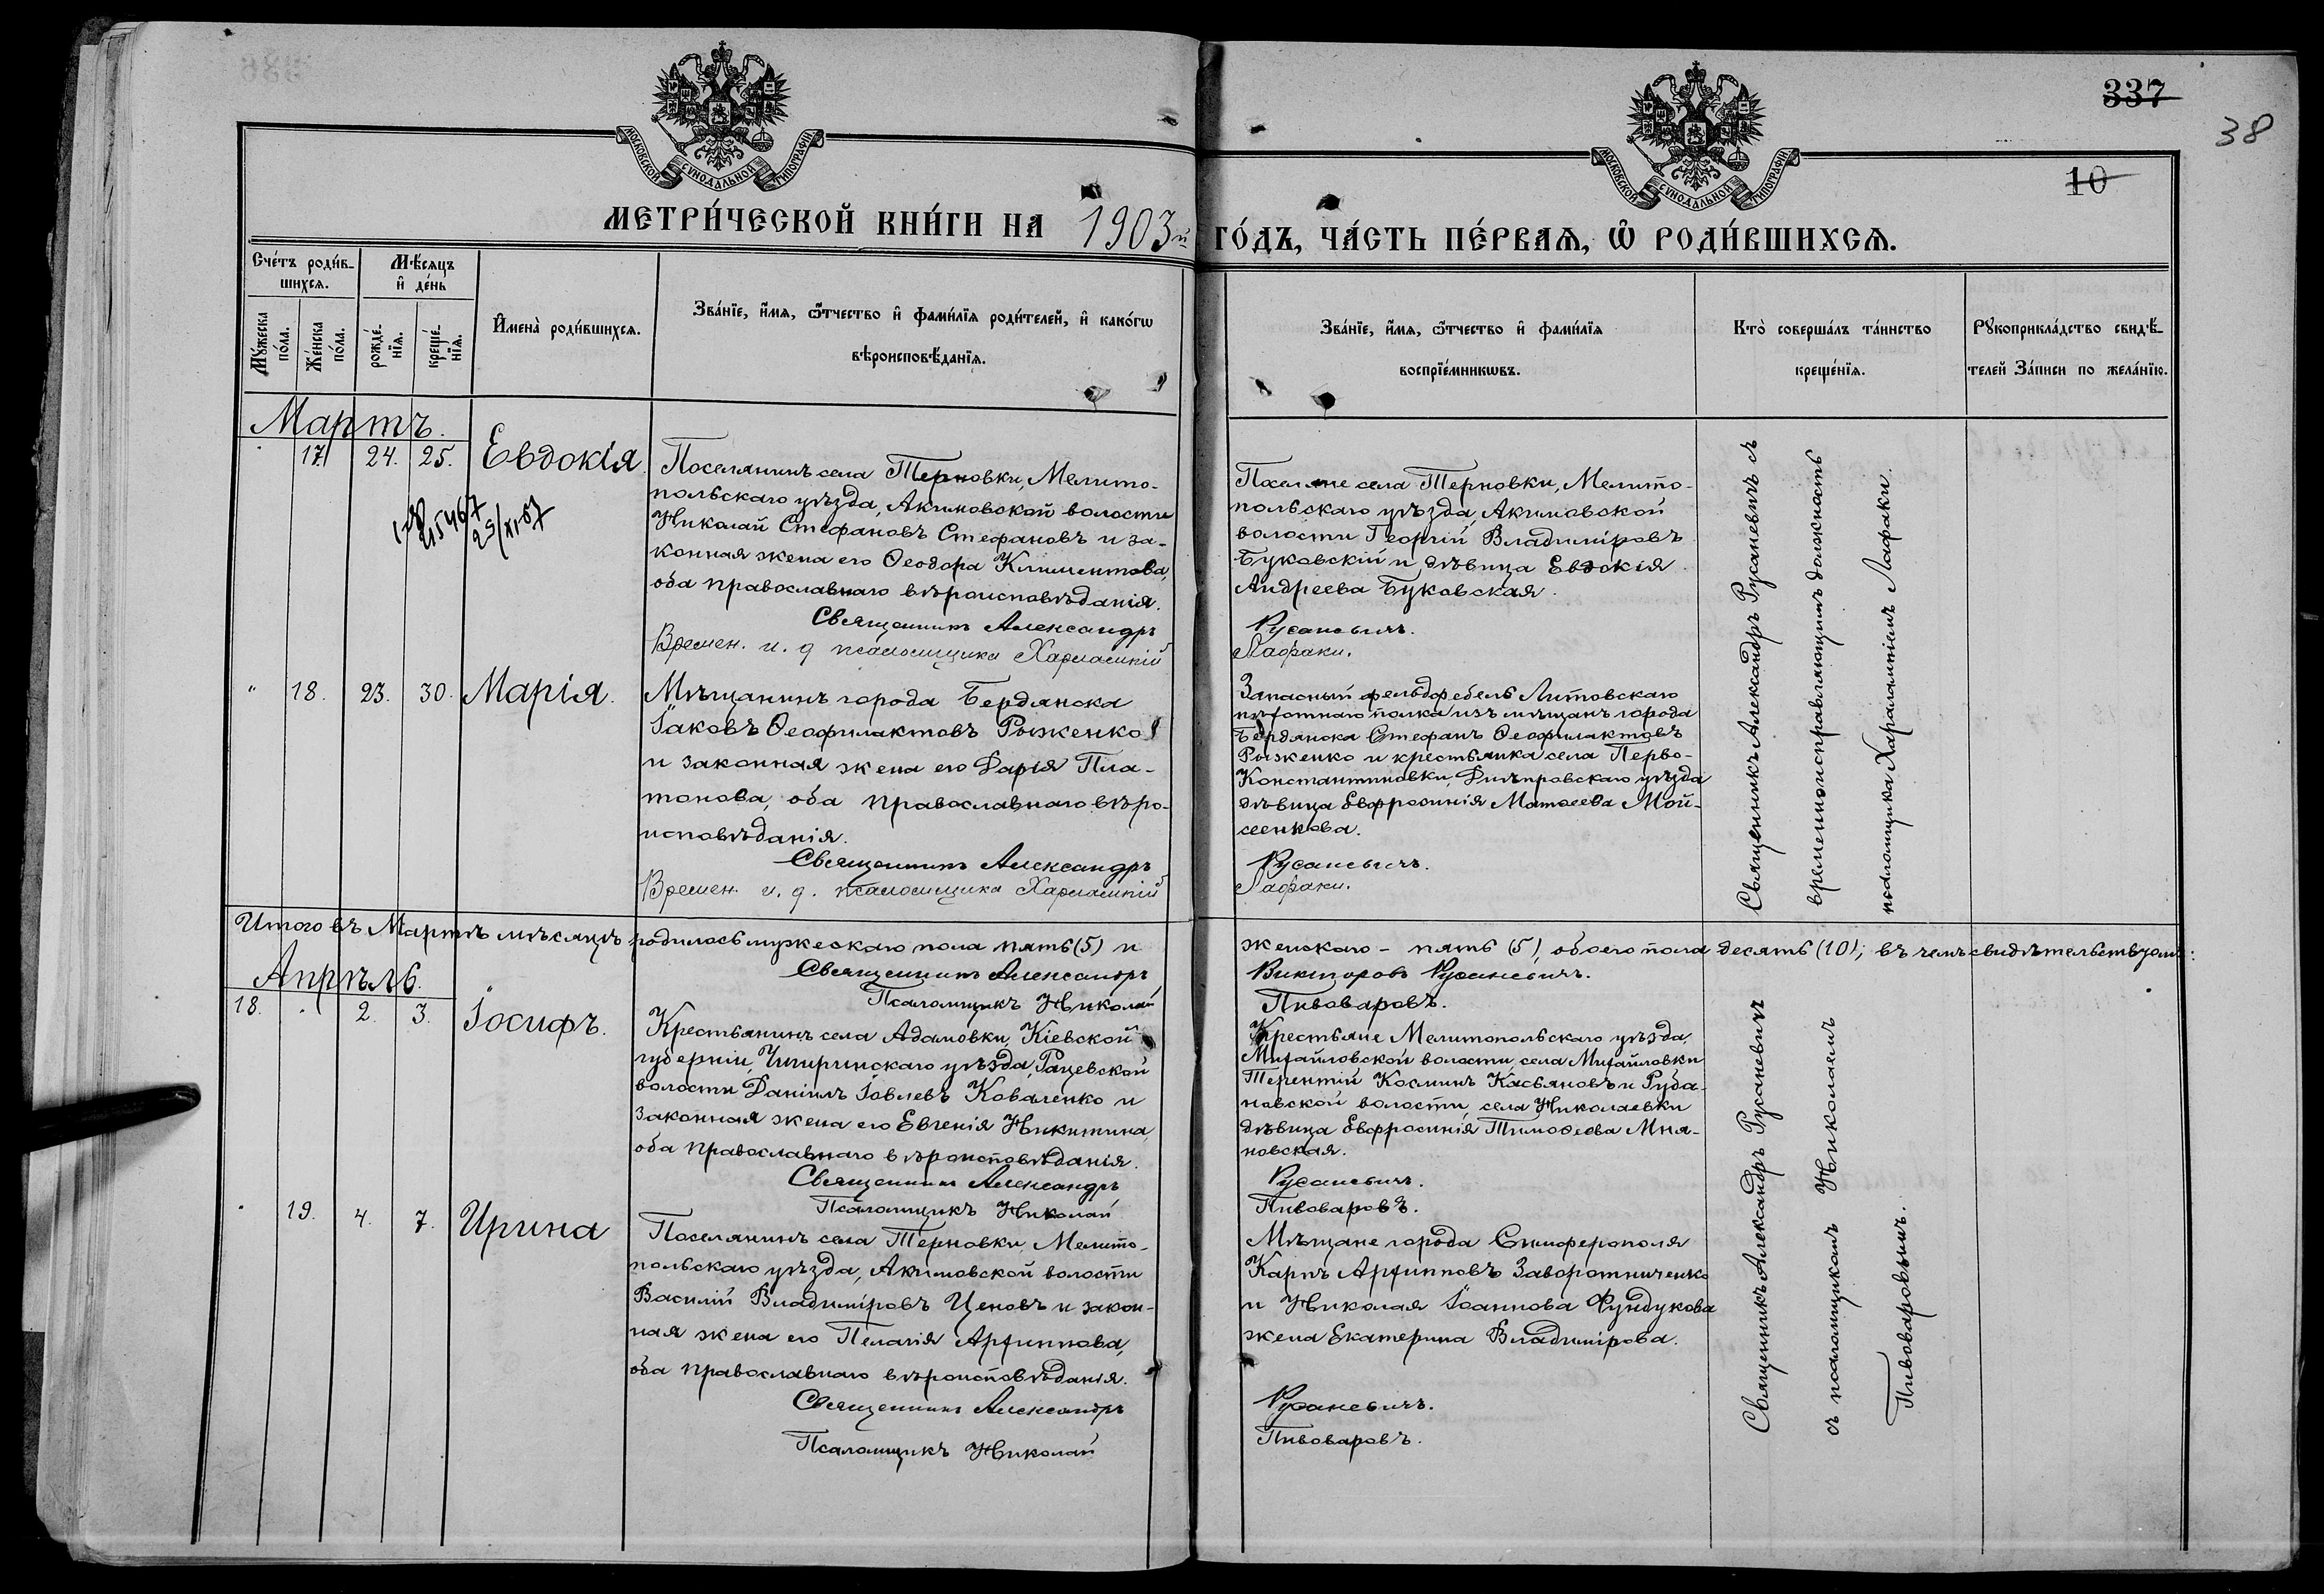 МОСКОВСКОЙ СУНОДАЛЬНОЙ ТИПОГРАФІИ
МОСКОВСКОЙ СУНОДАЛЬНОЙ ТИПОГРАФІИ
337
38
10
МЕТРИ́ЧЕСКОЙ КНИ́ГИ НА 1903й ГО́ДЪ, ЧА́СТЬ ПЕ́РВАѦ, Ѡ҆ РОДИ́ВШИХСѦ.
Сче́тъ роди́в-
шихсѧ.
Мꙋ́жеска по́ла.
Же́нска по́ла.
Мѣ́сѧцъ и҆ де́нь
рожде́-нїѧ.
креще́-нїѧ.
И҆мена̀ роди́вшихсѧ.
Зва́нїе, и҆́мѧ, ѻ҆́тчество и҆ фами́лїѧ роди́телей, и҆ како́гѡ
вѣроисповѣ́данїѧ.
Зва́нїе, и҆́мѧ, ѻ҆́тчество и҆ фами́лїѧ
воспрїе́мникѡвъ.
Кто̀ соверша́лъ та́инство
креще́нїѧ.
Рꙋкоприкла́дство свидѣ́-
телей За́писи по жела́нїю.
Мартъ.
17. 24. 25. Евдокія.
Поселянинъ села Терновки, Мелито-
польскаго уѣзда, Акимовской волости
Николай Стефановъ Стефановъ и за-
конная жена его Ѳеодора Климентова,
оба православнаго вѣроисповѣданія.
Священникъ Александръ
Времен. и. д. псаломщика Харлампій
Поселяне села Терновки, Мелито-
польскаго уѣзда, Акимовской
волости Георгій Владиміровъ
Буковскій и дѣвица Евдокія
Андреева Буковская.
Русаневичъ.
Лафаки.
Священникъ Александръ Русаневичъ съ
временноисправляющимъ должность
псаломщика Харалампіемъ Лафаки.
" 18. 23. 30. Марія.
Мѣщанинъ города Бердянска
Іаковъ Ѳеофилактовъ Рыженко
и законная жена его Дарія Пла-
тонова, оба православнаго вѣро-
исповѣданія.
Священникъ Александръ
Времен. и. д. псаломщика Харлампій
Запасный фельдфебель Литовскаго
пѣхотнаго полка изъ мѣщанъ города
Бердянска Стефанъ Ѳеофилактовъ
Рыженко и крестьянка села Перво-
Константиновки, Днѣпровскаго уѣзда
дѣвица Евфросинія Матѳеева Мой-
сеенкова.
Русаневичъ.
Лафаки.
Итого въ Мартѣ мѣсяцѣ родилось мужескаго пола пять (5) и женскаго - пять (5), обоего пола десять (10); въ чемъ свидѣтельствуемъ:
Священникъ Александръ Викторовъ Русаневичъ.
Псаломщикъ Николай Пивоваровъ.
Апрѣль.
18. 2. 3. Іосифъ.
Крестьянинъ села Адамовки, Кіевской
губерніи, Чигиринскаго уѣзда, Рацевской
волости Даніилъ Іовлевъ Коваленко и
законная жена его Евгенія Никитина,
оба православнаго вѣроисповѣданія.
Священникъ Александръ
Псаломщикъ Николай
Крестьяне Мелитопольскаго уѣзда,
Михайловской волости, села Михайловки
Терентій Косминъ Касьяновъ и Руба-
новской волости, села Николаевки
дѣвица Евфросинія Тимоѳеева Мня-
новская.
Русаневичъ.
Пивоваровъ.
Священникъ Александръ Русаневичъ
съ псаломщикомъ Николаемъ
Пивоваровымъ.
19. 4. 7. Ирина
Поселянинъ села Терновки, Мелито-
польскаго уѣзда, Акимовской волости
Василій Владиміровъ Ценовъ и закон-
ная жена его Пелагія Архиппова,
оба православнаго вѣроисповѣданія.
Священникъ Александръ
Псаломщикъ Николай
Мѣщане города Симферополя
Карпъ Архипповъ Заворотниченко
и Николая Іоаннова Фундукова
жена Екатерина Владимірова.
Русаневичъ.
Пивоваровъ.